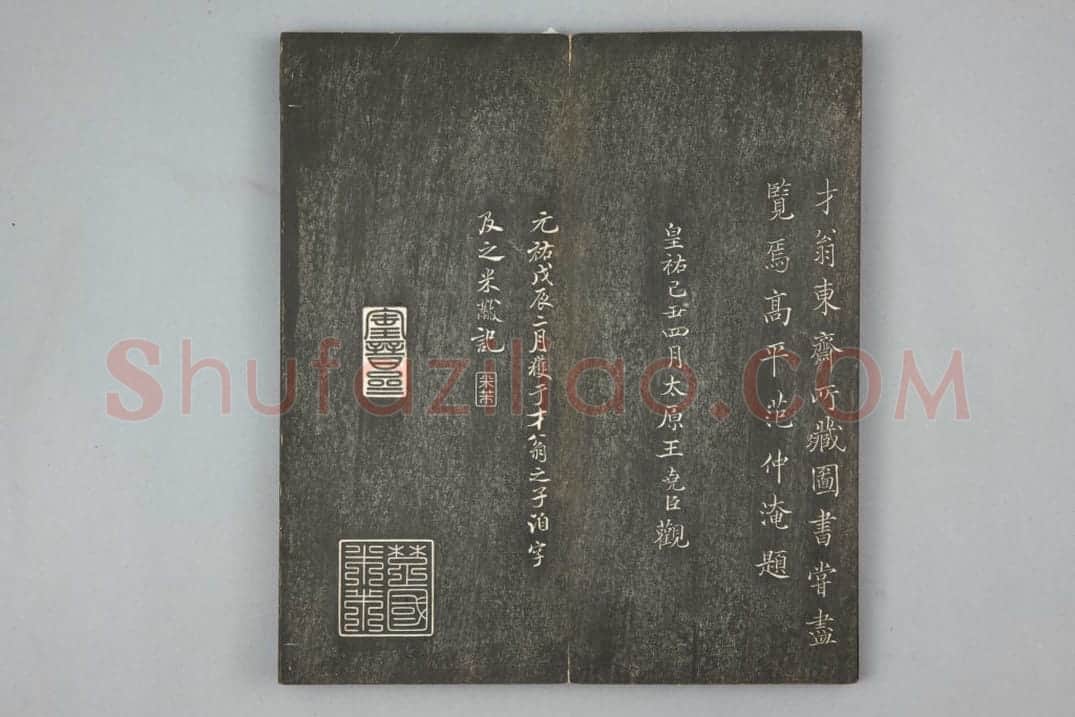 才翁東齋所藏圖書甞盡
覽焉高平范仲淹題
皇祐己丑四月太原王堯臣觀
元祐戊辰二月獲于才翁之子洎字
及之米黻記
米芾
楚國米芾
Shufaziliao.COM